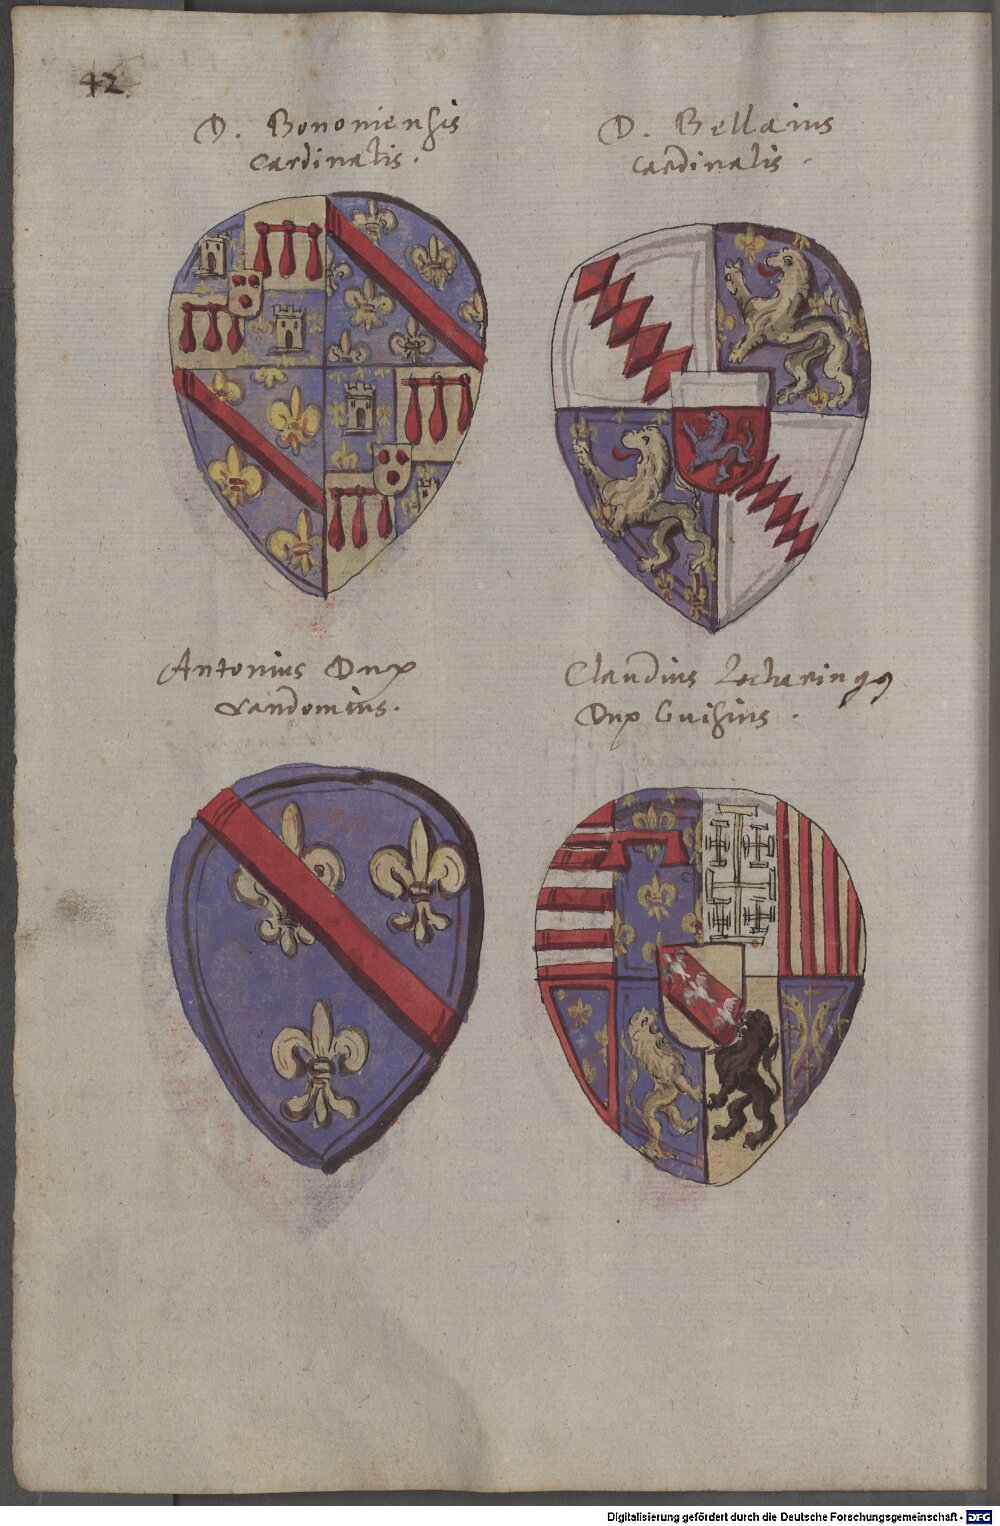 42
D. Bononiensis
Cardinalis.
D. Bellaius
Cardinalis.
Antonius Dux
Vandomius.
Claudius Lotharingq
Dux Guisius.
Digitalisierung gefördert durch die Deutsche Forschungsgemeinschaft - DFG